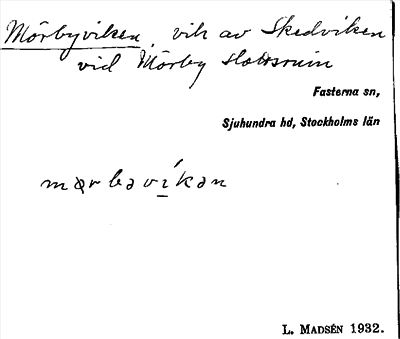 Mörbyviken, vik av Skedviken
vid Mörby slottsruin
Fasterna sn,
Sjuhundra hd, Stockholms län
mœrbəvíkən
L. MADSÉN 1932.